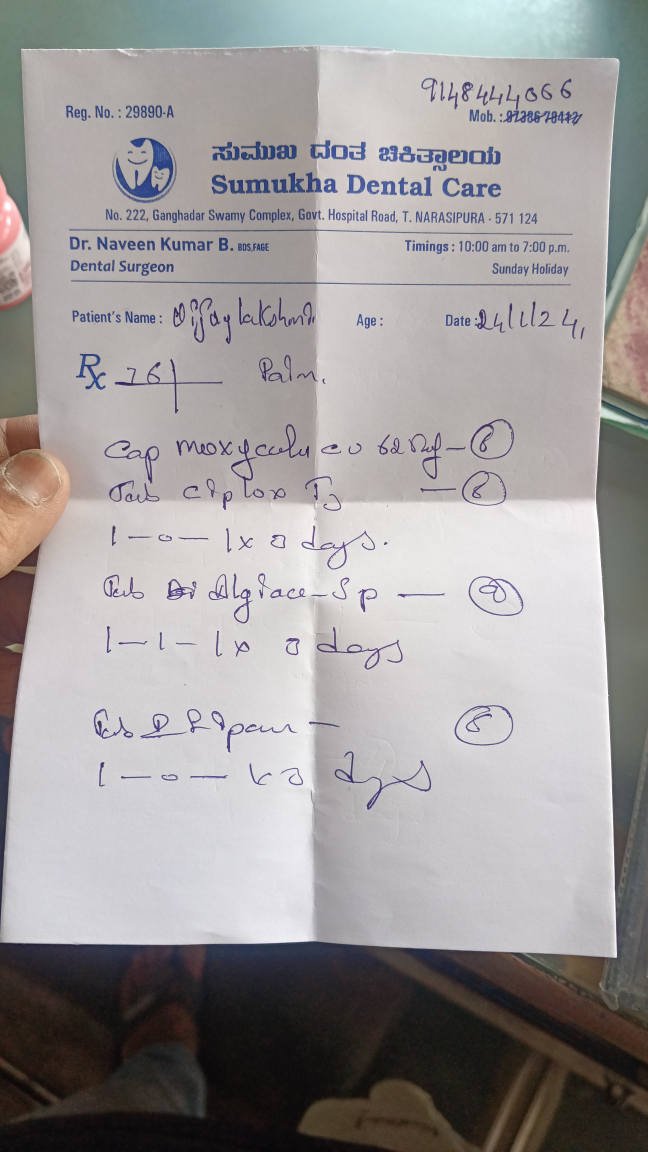 9148444066
Reg. No. : 29890-A
Mob. :
ಸುಮುಖ ದಂತ ಚಿಕಿತ್ಸಾಲಯ
Sumukha Dental Care
No. 222, Ganghadar Swamy Complex, Govt. Hospital Road, T. NARASIPURA - 571 124
Dr. Naveen Kumar B. BDS,FAGE
Timings : 10:00 am to 7:00 p.m.
Dental Surgeon
Sunday Holiday
Patient's Name : Vijaylakshmi Age : Date : 24/1/24,
Rx 76
Cap 625mg - 6
Tab ciplox TZ - 6
1-0-1x 3 days.
Tab - 9
1-1-1x 3 days
Tab - 6
1-0-1 3 days